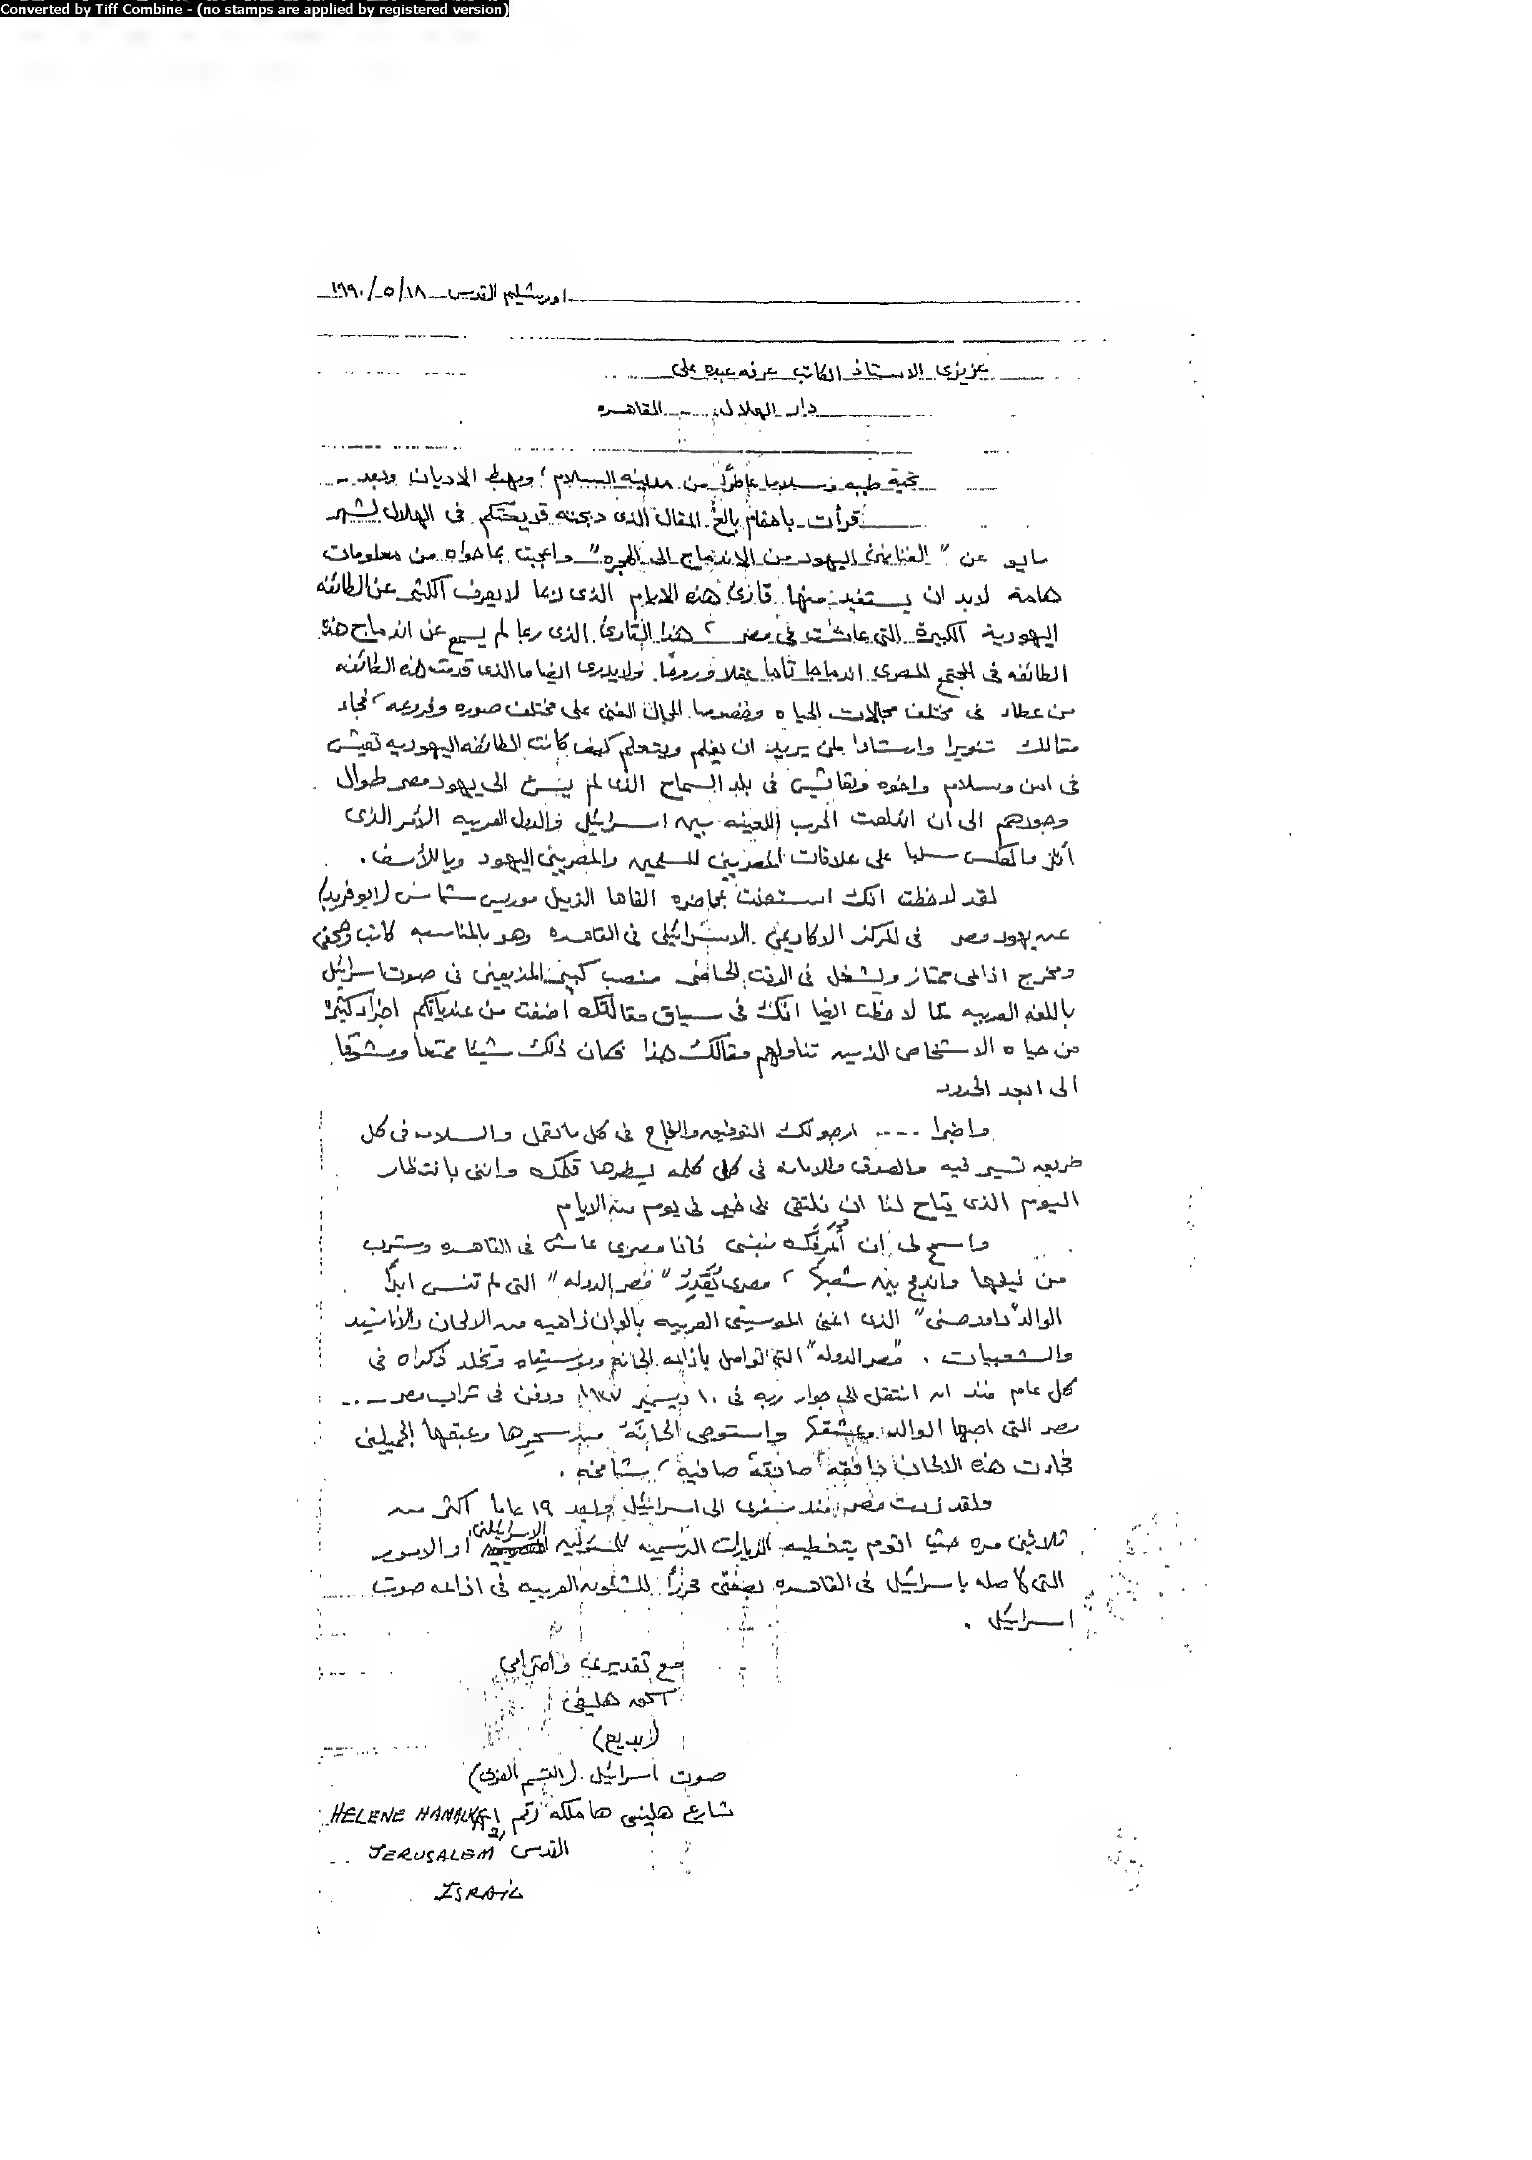 Converted by Tiff Combine - (no stamps are applied by registered version)
اورشليم القدس ١٨/٥/١٩٩٠
عزيزى الاستاذ الكاتب عرفه عبده على
دار الهلال - القاهره
تحية طيبه وسلاما عاطرًا من مدينه السلام ، ومهبط الاديان وبعد -
قرأت باهتمام بالغ المقال الذى دبجته قريحتكم فى الهلال لشهر
مايو عن " الفنانين اليهود من الاندماج الى الهجره" واعجبت بما حواه من معلومات
هامة لابد ان يستفيد منها قارئ هذه الايام الذى ربما لا يعرف الكثير عن الطائفه
اليهودية الكبيرة التى عاشت فى مصر ، هذا القارئ الذى ربما لم يسمع عن اندماج هذه
الطائفه فى المجتمع المصرى اندماجا تاما عقلا وروحًا. ولا يدرى ايضا ما الذى قدمته هذه الطائفه
من عطاء فى مختلف مجالات الحياه وخصوصا المجال الفنى على مختلف صوره وفروعه ، فجاء
مقالك تنويرا وارشادا لمن يريد ان يعلم ويتعلم كيف كانت الطائفه اليهوديه تعيش
فى امن وسلام واخوه وتعايش فى بلد السماح الذى لم يسئ الى يهود مصر طوال
وجودهم الى ان اندلعت الحرب اللعينه بين اسرائيل والدول العربيه الأمر الذى
أثر وانعكس سلبا على علاقات المصريين المسلمين والمصريين اليهود وياللأسف .
لقد لاحظت انك استعنت بمحاضره القاها الزميل موريس شماس (ابو فريد)
عن يهود مصر فى المركز الاكاديمى الاسرائيلى فى القاهره وهو بالمناسبه كاتب وصحفى
ومخرج اذاعى ممتاز ويشغل فى الوقت الحاضر منصب كبير المذيعين فى صوت اسرائيل
باللغه العربيه كما لاحظت ايضا انك فى سياق مقالتك اضفت من عندياتكم اجزاء كثيرة
من حياه الاشخاص الذين تناولهم مقالك هذا فكان ذلك شيئا ممتعا ومشوقا
الى ابعد الحدود
واخيرا .... ارجو لك التوفيق والنجاح فى كل ما تعمل والسلامه فى كل
طريق تسير فيه والصدق والامانه فى كل كلمه يسطرها قلمك واننى بانتظار
اليوم الذى يتاح لنا ان نلتقى على خير فى يوم من الايام
واسمح لى ان أُعرفك بنفسى فانا مصرى عاش فى القاهره وشرب
من نيلها واندمج بين شعبها ، مصرى يُقَدِرُ "مصر الدوله" التى لم تنس ابدًا
الوالد "داود حسنى" الذى اغنى الموسيقى العربيه بالوان زاهيه من الالحان والاناشيد
والشعبيات . "مصر الدوله" التى تواصل باذاعه الحانه وموسيقاه وتخلد ذكراه فى
كل عام منذ ان انتقل الى جوار ربه فى ١٠ ديسمبر ١٩٣٧ ودفن فى تراب مصر ...
مصر التى احبها الوالد وعشقها واستوحى الحانَهُ من سحرِها وعبقها الجميلين
فجاءت هذه الالحان خافقه صادقة صافية ، شامخه .
ولقد زرت مصر منذ سفرى الى اسرائيل وبعد ١٩ عاما اكثر من
ثلاثين مره حيث اقوم بتغطيه الزيارات الرسميه للمسئولين الاسرائيلين او الامور
التى لها صله باسرائيل فى القاهره بصفتى محررًا للشئون العربيه فى اذاعه صوت
اسرائيل .
مع تقديرى واحترامى
(بديع)
صوت اسرائيل (القسم العربى)
شارع هلينى هاملكه رقم ٢١ HELENE HAMALKA 21
القدس JERUSALEM
ISRAIL